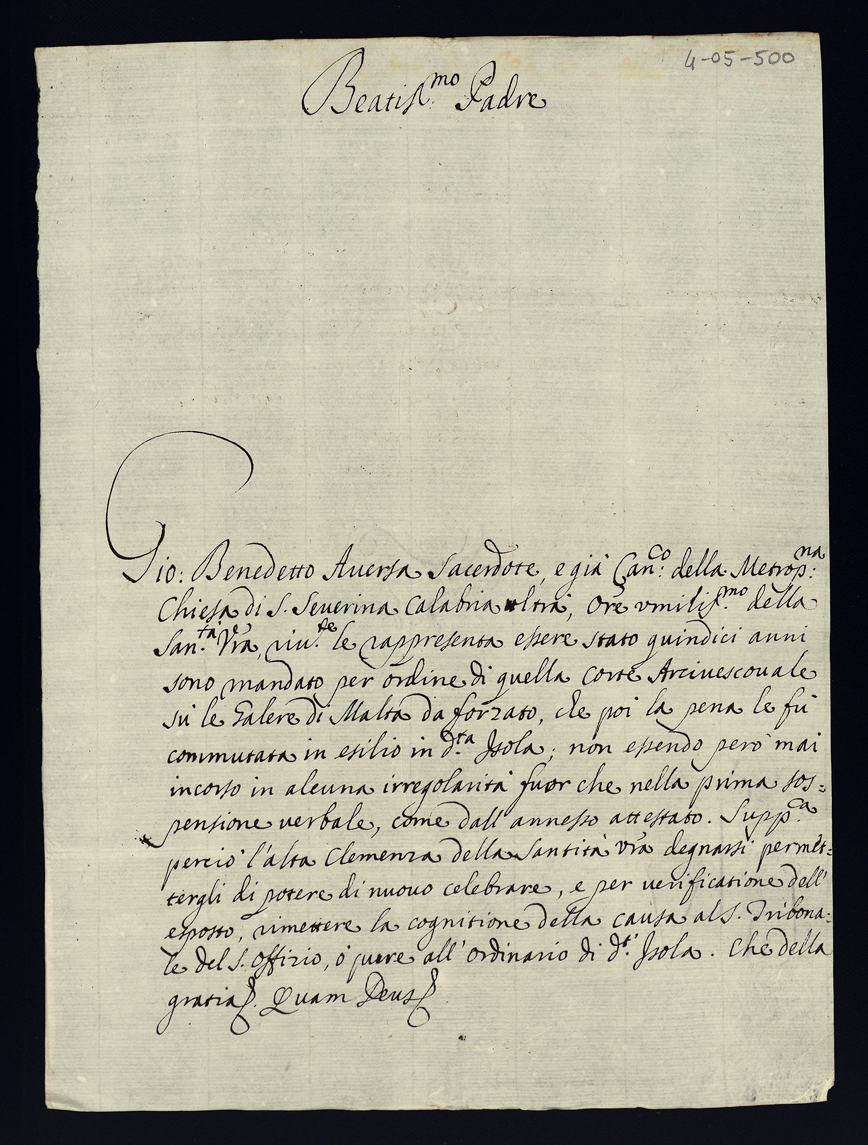 4-05-500
Beatiss.mo Padre
Gio: Benedetto Aversa Sacerdote, e già Can.co della Metrop.na
Chiesa di S. Severina Calabria ultra, Ore vmiliss.mo della
San.tà Vra, riu.te le rappresenta essere stato quindici anni
sono mandato per ordine di quella Corte Arciuescouale
sù le Galere di Malta da forzato, che poi la pena le fù
commutata in esilio in d.ta Isola; non essendo però mai
incorso in alcuna irregolarità fuor che nella prima sos=
pensione verbale, come dall' annesso attestato. Supp.ca
perciò l'alta Clemenza della Santità vra degnarsi permet=
tergli di potere di nuovo celebrare, e per verificatione dell'
esposto, rimettere la cognitione della causa al S. Tribona=
le del S. Offizio, ò pure all' Ordinario di d.t' Isola. Che della
gratia. Quam Deus